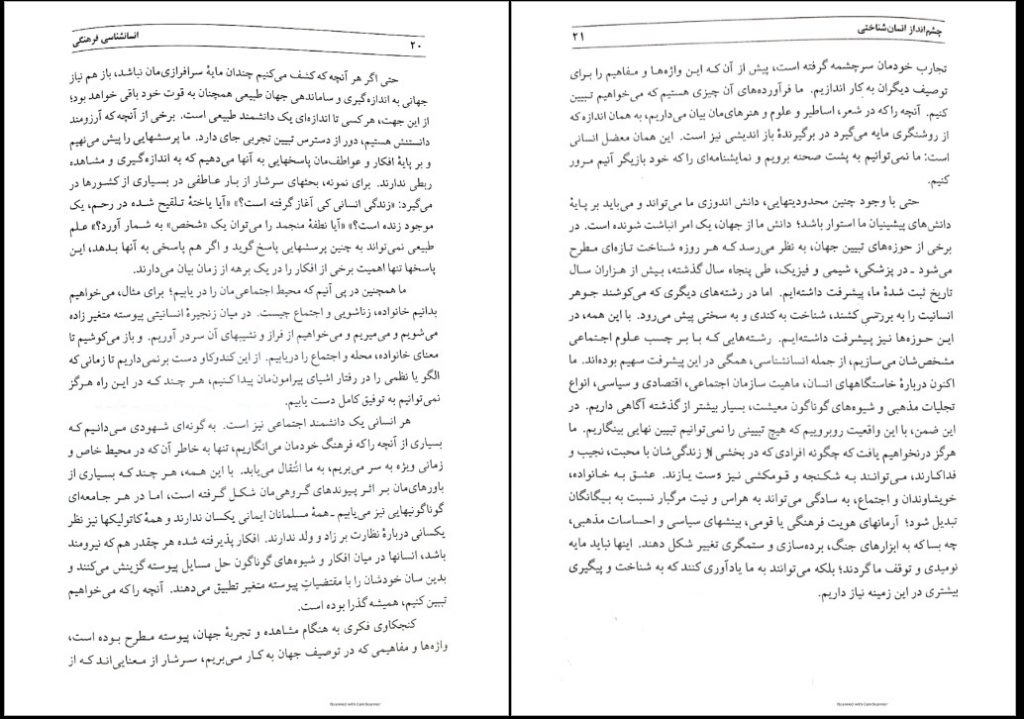 ۲۰ انسانشناسی فرهنگی
حتی اگر هر آنچه که کشف می‌کنیم چندان مایهٔ سرافرازی‌مان نباشد، باز هم نیاز
جهانی به اندازه‌گیری و ساماندهی جهان طبیعی همچنان به قوت خود باقی خواهد بود؛
از این جهت، هر کسی تا اندازه‌ای یک دانشمند طبیعی است. برخی از آنچه که آرزومند
دانستنش هستیم، دور از دسترس تبیین تجربی جای دارد. ما پرسشهایی را پیش می‌نهیم
و بر پایهٔ افکار و عواطف‌مان پاسخهایی به آنها می‌دهیم که به اندازه‌گیری و مشاهده
ربطی ندارند. برای نمونه، بحثهای سرشار از بار عاطفی در بسیاری از کشورها در
می‌گیرد: «زندگی انسانی کی آغاز گرفته است؟» «آیا یاختهٔ تلقیح شده در رحم، یک
موجود زنده است؟» «آیا نطفهٔ منجمد را می‌توان یک «شخص» به شمار آورد؟» علم
طبیعی نمی‌تواند به چنین پرسشهایی پاسخ گوید و اگر هم پاسخی به آنها بدهد، این
پاسخها تنها اهمیت برخی از افکار را در یک برهه از زمان بیان می‌دارند.
ما همچنین در پی آنیم که محیط اجتماعی‌مان را دریابیم؛ برای مثال، می‌خواهیم
بدانیم خانواده، زناشویی و اجتماع چیست. در میان زنجیرهٔ انسانیتی پیوسته متغیر زاده
می‌شویم و می‌میریم و می‌خواهیم از فراز و نشیبهای آن سر در آوریم. و باز می‌کوشیم تا
معنای خانواده، محله و اجتماع را دریابیم. از این کندوکاو دست برنمی‌داریم تا زمانی که
الگو یا نظمی را در رفتار اشیای پیرامون‌مان پیدا کنیم، هر چند که در این راه هرگز
نمی‌توانیم به توفیق کامل دست یابیم.
هر انسانی یک دانشمند اجتماعی نیز است. به گونه‌ای شهودی می‌دانیم که
بسیاری از آنچه را که فرهنگ خودمان می‌انگاریم، تنها به خاطر آن که در محیط خاص و
زمانی ویژه به سر می‌بریم، به ما انتقال می‌یابد. با این همه، هر چند که بسیاری از
باورهای‌مان بر اثر پیوندهای گروهی‌مان شکل گرفته است، اما در هر جامعه‌ای
گوناگونیهایی نیز می‌یابیم ـ همهٔ مسلمانان ایمانی یکسان ندارند و همهٔ کاتولیکها نیز نظر
یکسانی دربارهٔ نظارت بر زاد و ولد ندارند. افکار پذیرفته شده هر چقدر هم که نیرومند
باشد، انسانها در میان افکار و شیوه‌های گوناگون حل مسایل پیوسته گزینش می‌کنند و
بدین سان خودشان را با مقتضیاتِ پیوسته متغیر تطبیق می‌دهند. آنچه را که می‌خواهیم
تبیین کنیم، همیشه گذرا بوده است.
کنجکاوی فکری به هنگام مشاهده و تجربهٔ جهان، پیوسته مطرح بوده است،
واژه‌ها و مفاهیمی که در توصیف جهان به کار می‌بریم، سرشار از معنایی‌اند که از
Scanned with CamScanner
چشم‌انداز انسان‌شناختی ۲۱
تجارب خودمان سرچشمه گرفته است، پیش از آن که این واژه‌ها و مفاهیم را برای
توصیف دیگران به کار اندازیم. ما فرآورده‌های آن چیزی هستیم که می‌خواهیم تبیین
کنیم. آنچه را که در شعر، اساطیر و علوم و هنرهای‌مان بیان می‌داریم، به همان اندازه که
از روشنگری مایه می‌گیرد در برگیرندهٔ باز اندیشی نیز است. این همان معضل انسانی
است: ما نمی‌توانیم به پشت صحنه برویم و نمایشنامه‌ای را که خود بازیگر آنیم مرور
کنیم.
حتی با وجود چنین محدودیتهایی، دانش اندوزی ما می‌تواند و می‌باید بر پایهٔ
دانش‌های پیشینیان ما استوار باشد؛ دانش ما از جهان، یک امر انباشت شونده است. در
برخی از حوزه‌های تبیین جهان، به نظر می‌رسد که هر روزه شناخت تازه‌ای مطرح
می‌شود ـ در پزشکی، شیمی و فیزیک، طی پنجاه سال گذشته، بیش از هزاران سال
تاریخ ثبت شدهٔ ما، پیشرفت داشته‌ایم. اما در رشته‌های دیگری که می‌کوشند جوهر
انسانیت را به بررسی کشند، شناخت به کندی و به سختی پیش می‌رود. با این همه، در
این حوزه‌ها نیز پیشرفت داشته‌ایم. رشته‌هایی که با بر چسب علوم اجتماعی
مشخص‌شان می‌سازیم، از جمله انسانشناسی، همگی در این پیشرفت سهیم بوده‌اند. ما
اکنون دربارهٔ خاستگاههای انسان، ماهیت سازمان اجتماعی، اقتصادی و سیاسی، انواع
تجلیات مذهبی و شیوه‌های گوناگون معیشت، بسیار بیشتر از گذشته آگاهی داریم. در
این ضمن، با این واقعیت روبروییم که هیچ تبیینی را نمی‌توانیم تبیین نهایی بینگاریم. ما
هرگز درنخواهیم یافت که چگونه افرادی که در بخشی از زندگی‌شان با محبت، نجیب و
فداکارند، می‌توانند به شکنجه و قوم‌کشی نیز دست یازند. عشق به خانواده،
خویشاوندان و اجتماع، به سادگی می‌تواند به هراس و نیت مرگبار نسبت به بیگانگان
تبدیل شود؛ آرمانهای هویت فرهنگی یا قومی، بینشهای سیاسی و احساسات مذهبی،
چه بسا که به ابزارهای جنگ، برده‌سازی و ستمگری تغییر شکل دهند. اینها نباید مایه
نومیدی و توقف ما گردند؛ بلکه می‌توانند به ما یادآوری کنند که به شناخت و پیگیری
بیشتری در این زمینه نیاز داریم.
Scanned with CamScanner